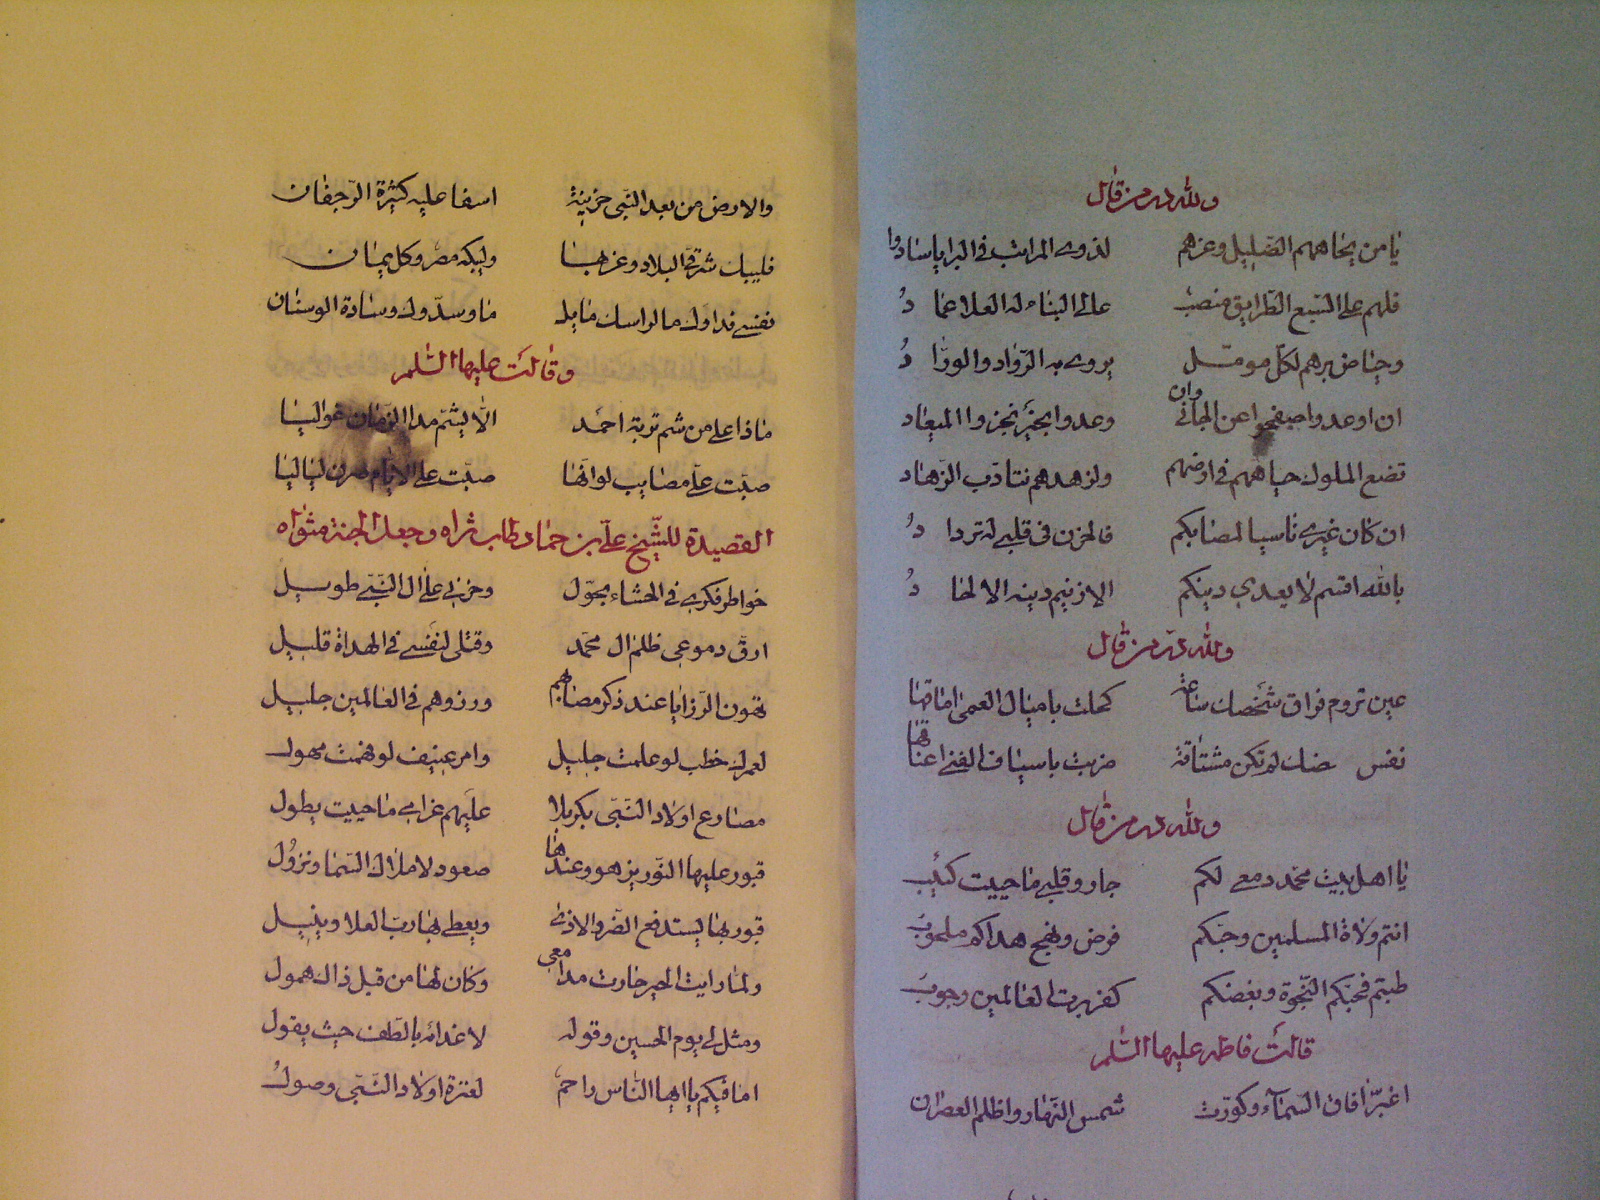 ولله در من قال
يا من بحاههم الضليل وعزهم لذوي المراتب في البرايا سادوا
فلهم على السبع الطرايق منصب عالي البناء له العلا عماد
وحياض برهم لكل مومل يروى به الرواد والوراد
ان اوعدوا صفحوا عن الجاني وان وعدوا بخير نجزوا الميعاد
تضع الملوك جباههم في ارضهم ولزهدهم تتادب الزهاد
ان كان غيري ناسيا لمصابكم فالحزن في قلبي له ترداد
بالله اقسم لا يعدي دينكم الا زنيم دينه الالحاد
ولله در من قال
عين تروم فراق شخصك ساعة كحلت باميال العمى اماقها
نفس لم تكن مشتاقة ضربت باسياف الفنى اعناقها
ولله در من قال
يا اهل بيت محمد دمعي لكم جار وقلبي ما حييت كئيب
انتم ولاة المسلمين وحبكم فرض ونهج هداكم ملحوب
طبتم فحبكم النجوة وبغضكم كفر برب العالمين وحوب
قالت فاطمه عليها السلم
اغبر افاق السماء وكورت شمس النهار واظلم العصران
والارض من بعد النبي حزينة اسفا عليه كثيرة الرجفان
فليبك شرقي البلاد وغربها وليبكه مضر وكل يمان
نفسي فداؤك ما لراسك مايله ما وسدوك وسادة الوسنان
وقالت عليها السلم
ماذا على من شم تربة احمد الا يشم مدا الزمان غواليا
صبت علي مصايب لو انها صبت على الايام صرن لياليا
القصيدة للشيخ علي بن حماد طاب ثراه وجعل الجنة مثواه
خواطر فكري في الحشاء تجول وحزني على ال النبي طويل
ارق دموعي ظلم ال محمد وقتلي لنفسي في الهداة قليل
تهون الرزايا عند ذكر مصابهم ورزوهم في العالمين جليل
لعمرك خطب لو علمت جليل وامر عنيف لو فهمت مهول
مصارع اولاد النبي بكربلا عليهم غرامي ما حييت يطول
قبور عليها النور يزهو وعندها صعود لاملاك السما ونزول
قبور بها يستدفع الضر والاذى ويعطي بها رب العلا وينيل
ولما رايت الحير حارت مدامعي وكان لها من قبل ذاك همول
ومثل لي يوم الحسين وقوله لاعدائه بالطف حيث يقول
اما فيكم يا ايها الناس راحم لعترة اولاد النبي وصول